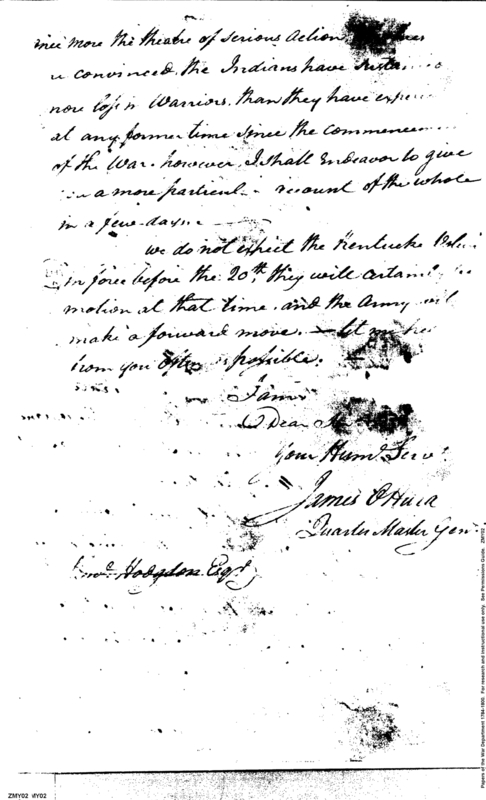 more the theatre of Serious Action
convinced the Indians have
more loss in Warriors than they have
at any former time since the
of the War. however I shall Endeavor to give
a more particular account of the whole
in a few days
we do not expect the Kentucke
in force before the 20th, they will
motion at that time, and the Army
make a forward move. — let me
from you often as possible.
I am
Dear
Your Humb. Serv.
James OHara
Quarter Master Gen
Hodgdon Esqr.
Papers of the War Department 1784-1800. For research and instructional use only. See Permissions Guide. ZMY02
ZMY02 MY02